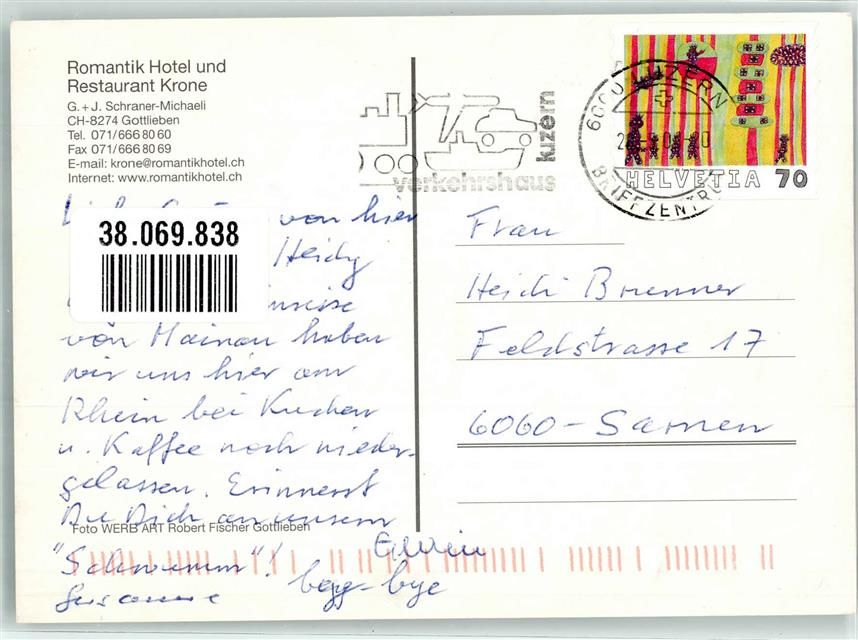 Romantik Hotel und
Restaurant Krone
G. + J. Schraner-Michaeli
CH-8274 Gottlieben
Tel. 071/666 80 60
Fax 071/666 80 69
E-mail: krone@romantikhotel.ch
Internet: www.romantikhotel.ch
von hier
38.069.838
Heidy
von Mainau haben
wir uns hier am
Rhein bei Kuchen
u. Kaffee noch nieder-
gelassen. Erinnerst
Du Dich an unsern
Foto WERB ART Robert Fischer Gottlieben
"Schwumm"!
Susanne
Erwin
bye-bye
verkehrshaus
luzern
6000 LUZERN
BRIEFZENTRUM
HELVETIA 70
Frau
Heidi Brunner
Feldstrasse 17
6060-Sarnen